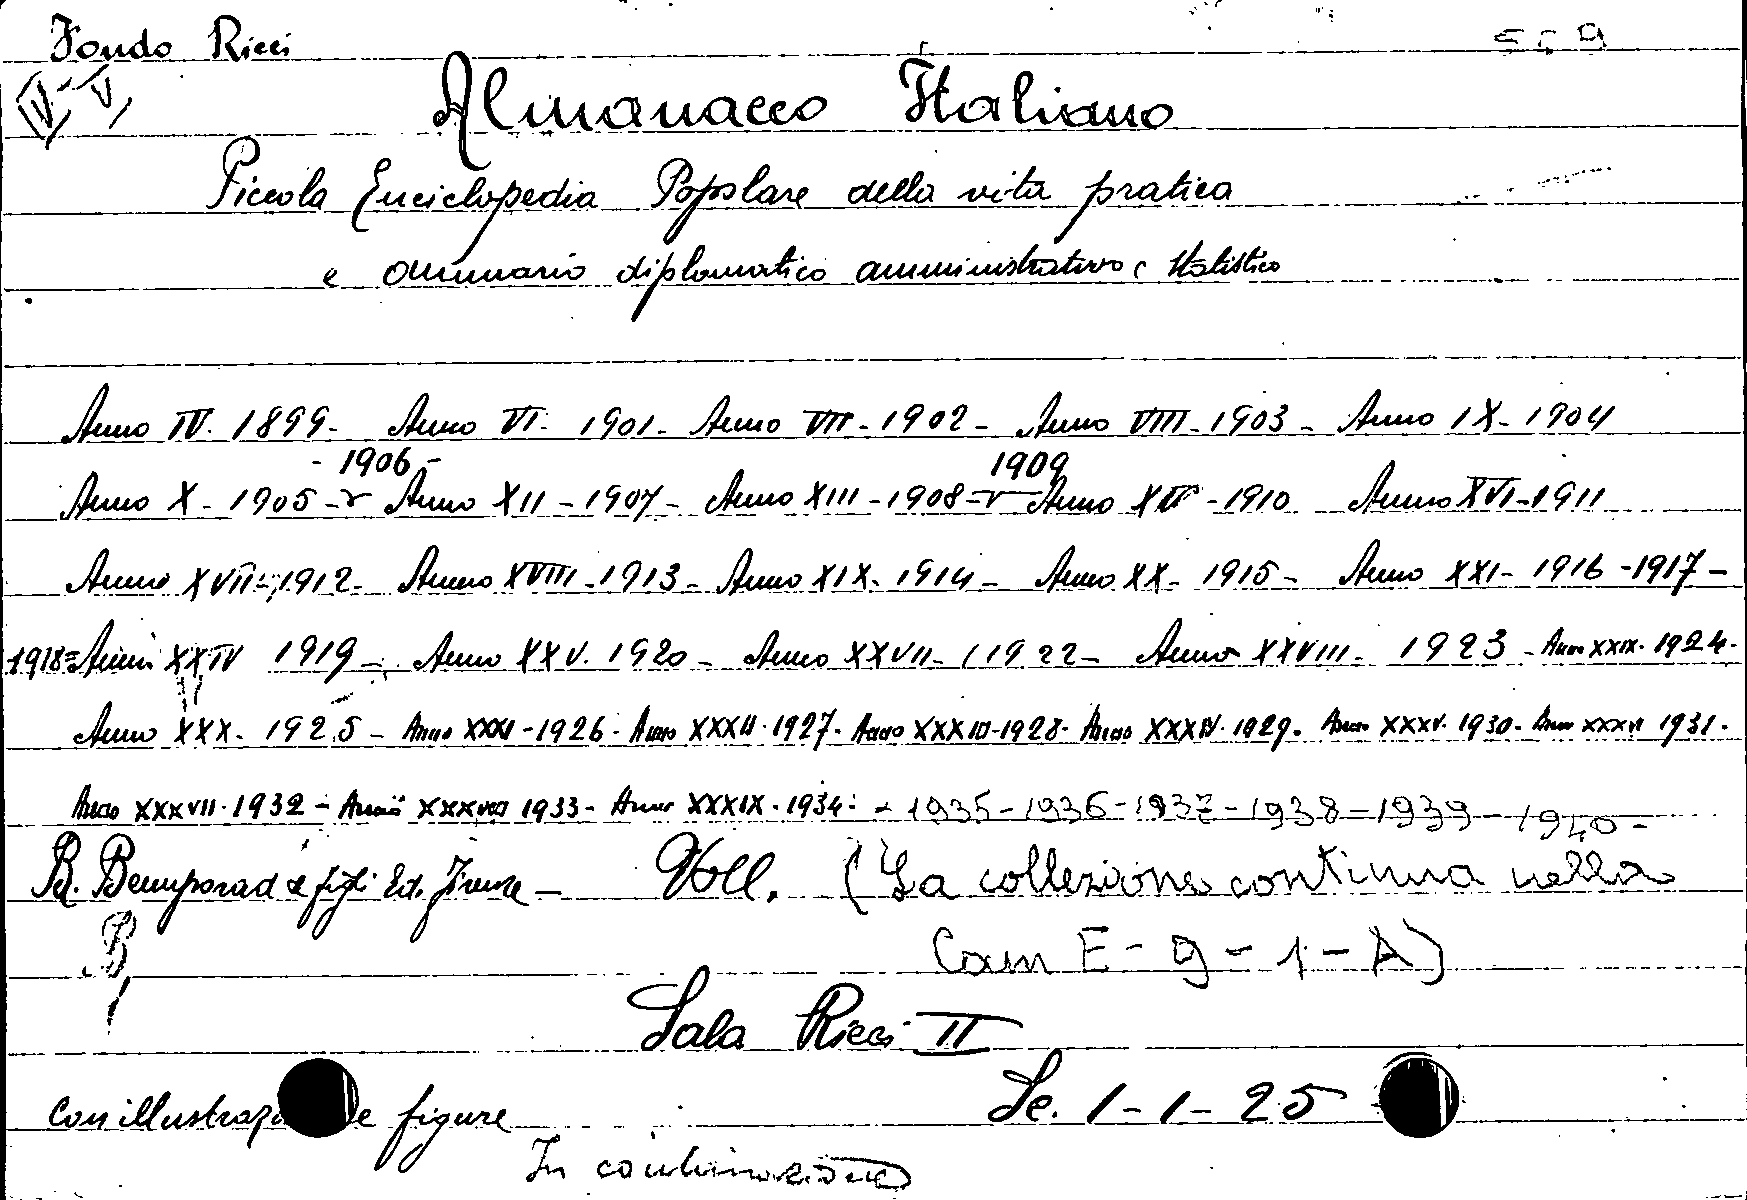 Fondo Ricci
V.
Almanacco Italiano
Piccola Enciclopedia Popolare della vita pratica
e annuario diplomatico amministrativo e statistico
Anno IV. 1899 - Anno VI - 1901 - Anno VII - 1902 - Anno VIII - 1903 - Anno IX - 1904
- 1906 - 1909
Anno X - 1905 - v Anno XII - 1907 - Anno XIII - 1908 = v Anno XV - 1910 Anno XVI - 1911
Anno XVII - 1912 - Anno XVIII - 1913 - Anno XIX - 1914 - Anno XX - 1915 - Anno XXI - 1916 - 1917 -
1918 = Anni XXIV 1919 - Anno XXV. 1920 - Anno XXVII - 1922 - Anno XXVIII - 1923 - Anno XXIX. 1924.
Anno XXX. 1925 - Anno XXXI - 1926 - Anno XXXII. 1927. Anno XXXIII - 1928. Anno XXXIV. 1929. Anno XXXV. 1930. Anno XXXVI 1931.
Anno XXXVII. 1932 - Anno XXXVIII 1933 - Anno XXXIX. 1934 - 1935 - 1936 - 1937 - 1938 - 1939 - 1940 -
R. Bemporad & figli Ed. Firenze - Voll. (La collezione continua nella
B Cam E - 9 - 1 - A)
Sala Ricci II
Se. 1 - 1 - 25
con illustrazi e figure
In combinazione